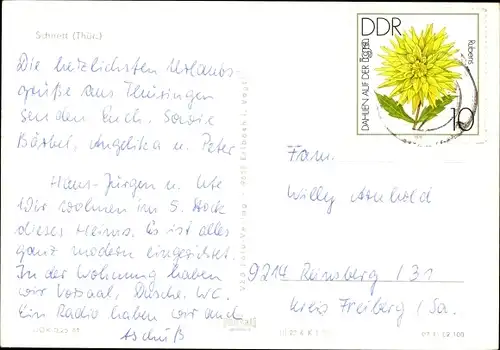 Schnett (Thür.)
Die herzlichsten Urlaubs-
grüße aus Thüringen
senden Euch. Sowie
Bärbel, Angelika u. Peter
Hans-Jürgen u. Ute
Wir wohnen im 5. Stock
dieses Heims. Es ist alles
ganz modern eingerichtet.
In der Wohnung haben
wir Vorsaal, Dusche, WC.
Ein Radio haben wir auch
Tschüß
DDR
DAHLIEN AUF DER
Rubens
10
Fam.
Willy
9217 Reinsberg / 31
Kreis Freiberg / Sa.